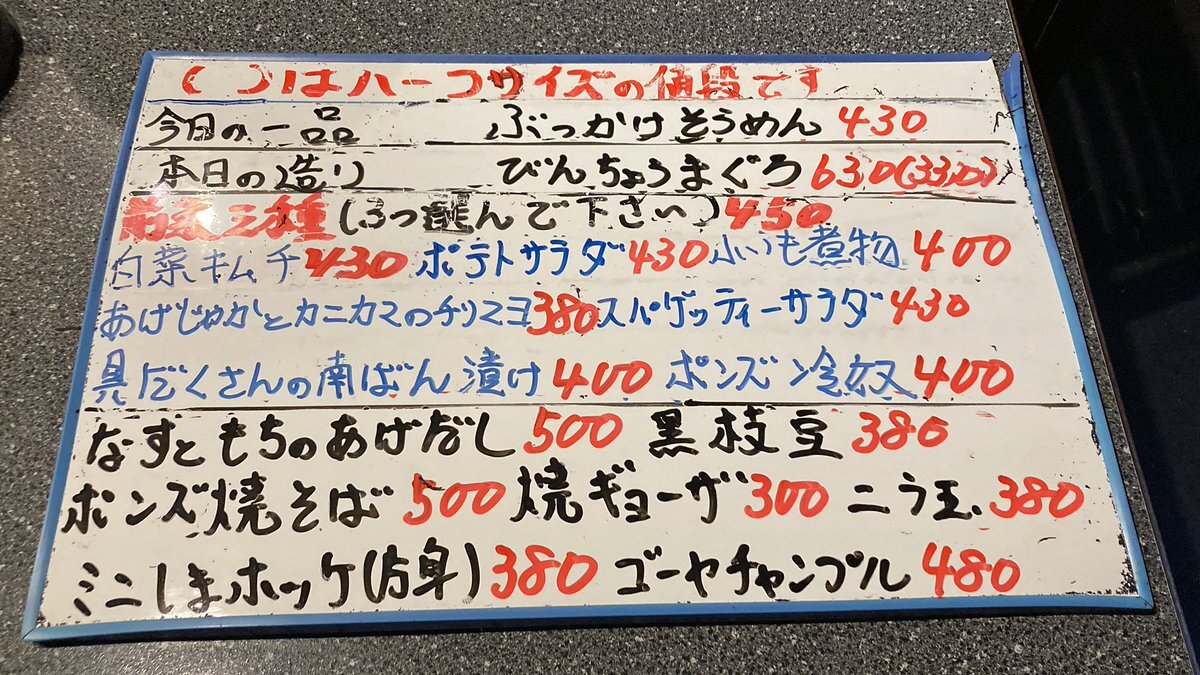 ( )はハーフサイズの値段です
今日の一品 ぶっかけそうめん 430
本日の造り びんちょうまぐろ 630(330)
前菜三種(3つ選んで下さい)450
白菜キムチ430 ポテトサラダ430 小いも煮物400
あげじゃがとカニカマのチリマヨ380 スパゲッティーサラダ430
具だくさんの南ばん漬け400 ポンズ冷奴400
なすともちのあげだし500 黒枝豆380
ポンズ焼そば500 焼ギョーザ300 ニラ玉380
ミニしまホッケ(片身)380 ゴーヤチャンプル480